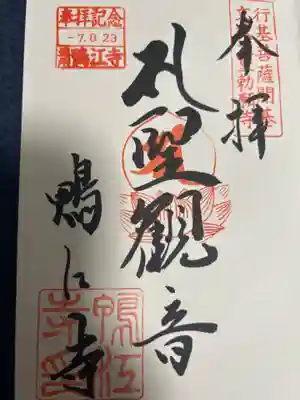 奉拝
行基菩薩開基
勅願寺
札聖観音
奉拝記念
-7.8.29
鴨江寺
鴨江寺
鴨江寺印